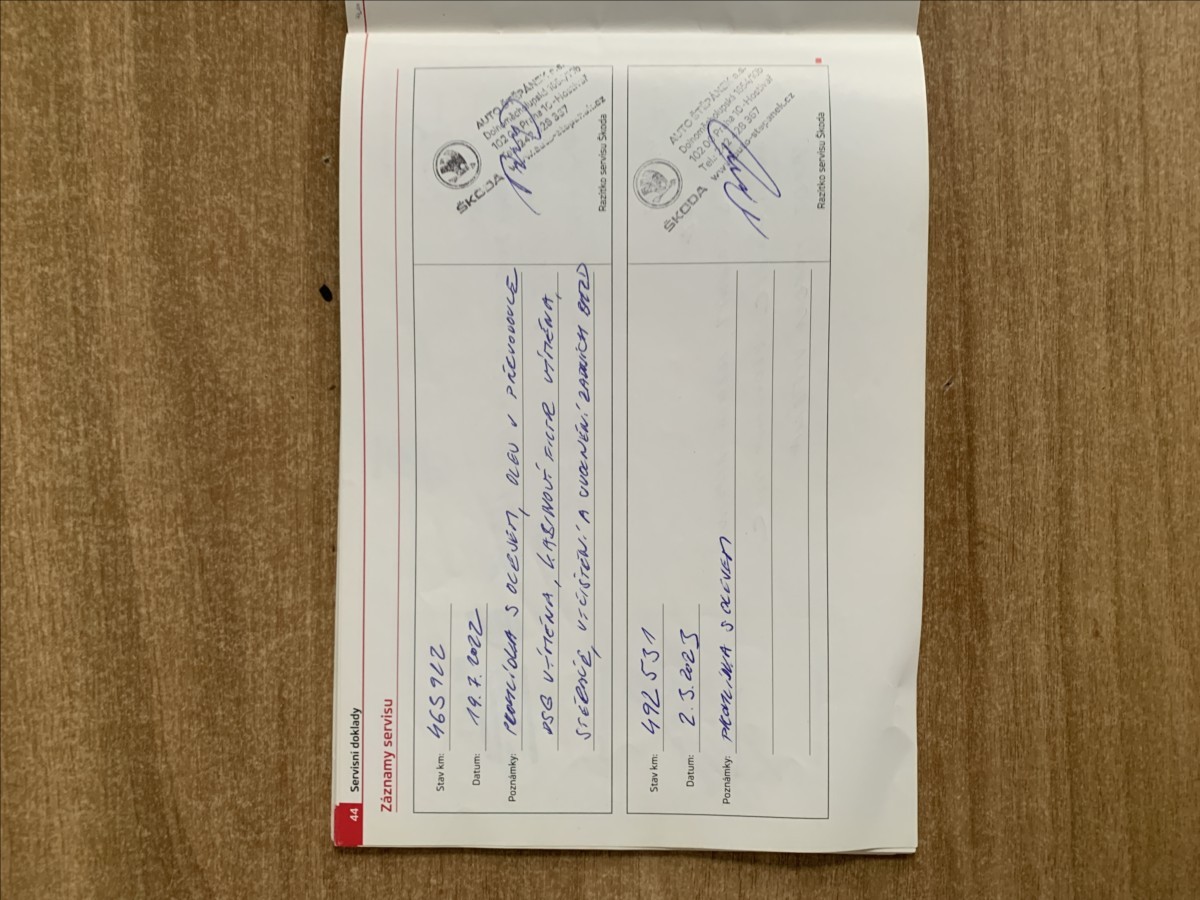 44 Servisní doklady
Záznamy servisu
Stav km: 465922
Datum: 19.7.2022
Poznámky: PROHLÍDKA S OLEJEM, OLEJ V PŘEVODOVCE
DSG VÝMĚNA, KABINOVÝ FILTR VÝMĚNA,
STĚRAČE, VYČIŠTĚNÍ A UVOLNĚNÍ ZADNÍCH BRZD
ŠKODA
AUTO ŠTĚPÁNEK a.s.
Dolnoměcholupská
102 00 Praha 10 - Hostivař
28 367
www.auto-stepanek.cz
Razítko servisu Škoda
Stav km: 492531
Datum: 2.3.2023
Poznámky: PROHLÍDKA S OLEJEM
ŠKODA
AUTO ŠTĚPÁNEK a.s.
Dolnoměcholupská
102 00 Praha 10 - Hostivař
Tel.: 28 367
www.auto-stepanek.cz
Razítko servisu Škoda